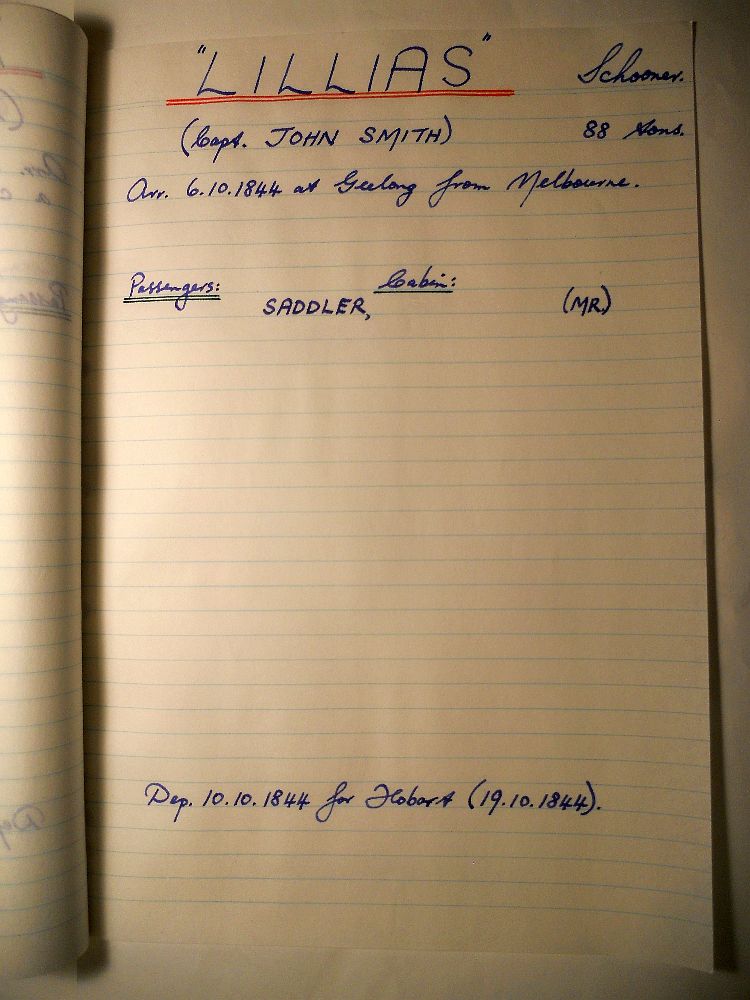 "LILLIAS" Schooner.
(Capt. JOHN SMITH) 88 tons.
Arr. 6.10.1844 at Geelong from Melbourne.
Passengers: Cabin:
SADDLER, (MR.)
Dep. 10.10.1844 for Hobart (19.10.1844).